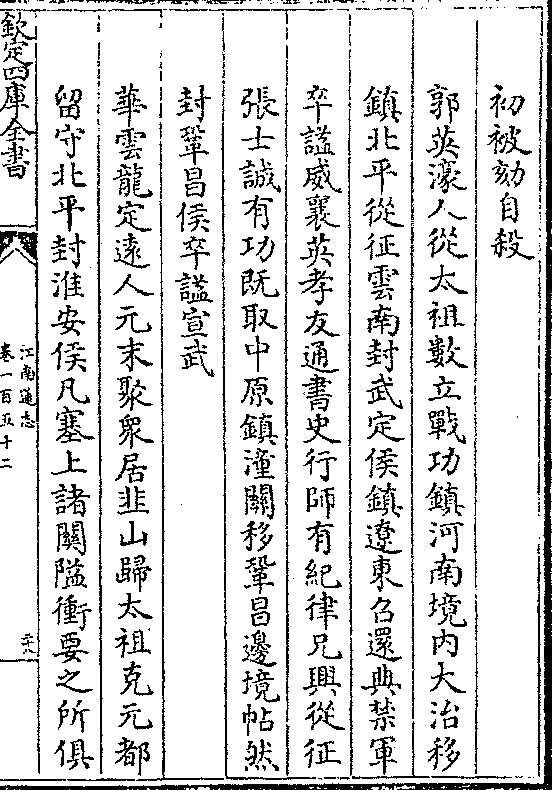 初被劾自殺
郭英濠人從太祖數立戰功鎮河南境内大治移
鎮北平從征雲南封武定侯鎮遼東召還典禁軍
卒諡威襄英孝友通書史行師有紀律兄興從征
張士誠有功既取中原鎮潼關移鞏昌邊境帖然
封鞏昌侯卒諡宣武
華雲龍定遠人元末聚衆居韭山歸太祖克元都
留守北平封淮安侯凡塞上諸關隘衝要之所俱
欽定四庫全書
江南通志
卷一百五十二
三十八